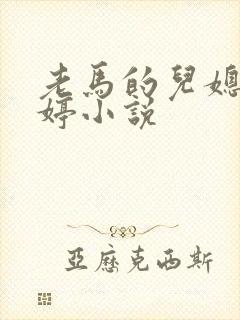 老馬的兒媳
婷小說
亞歷克西斯